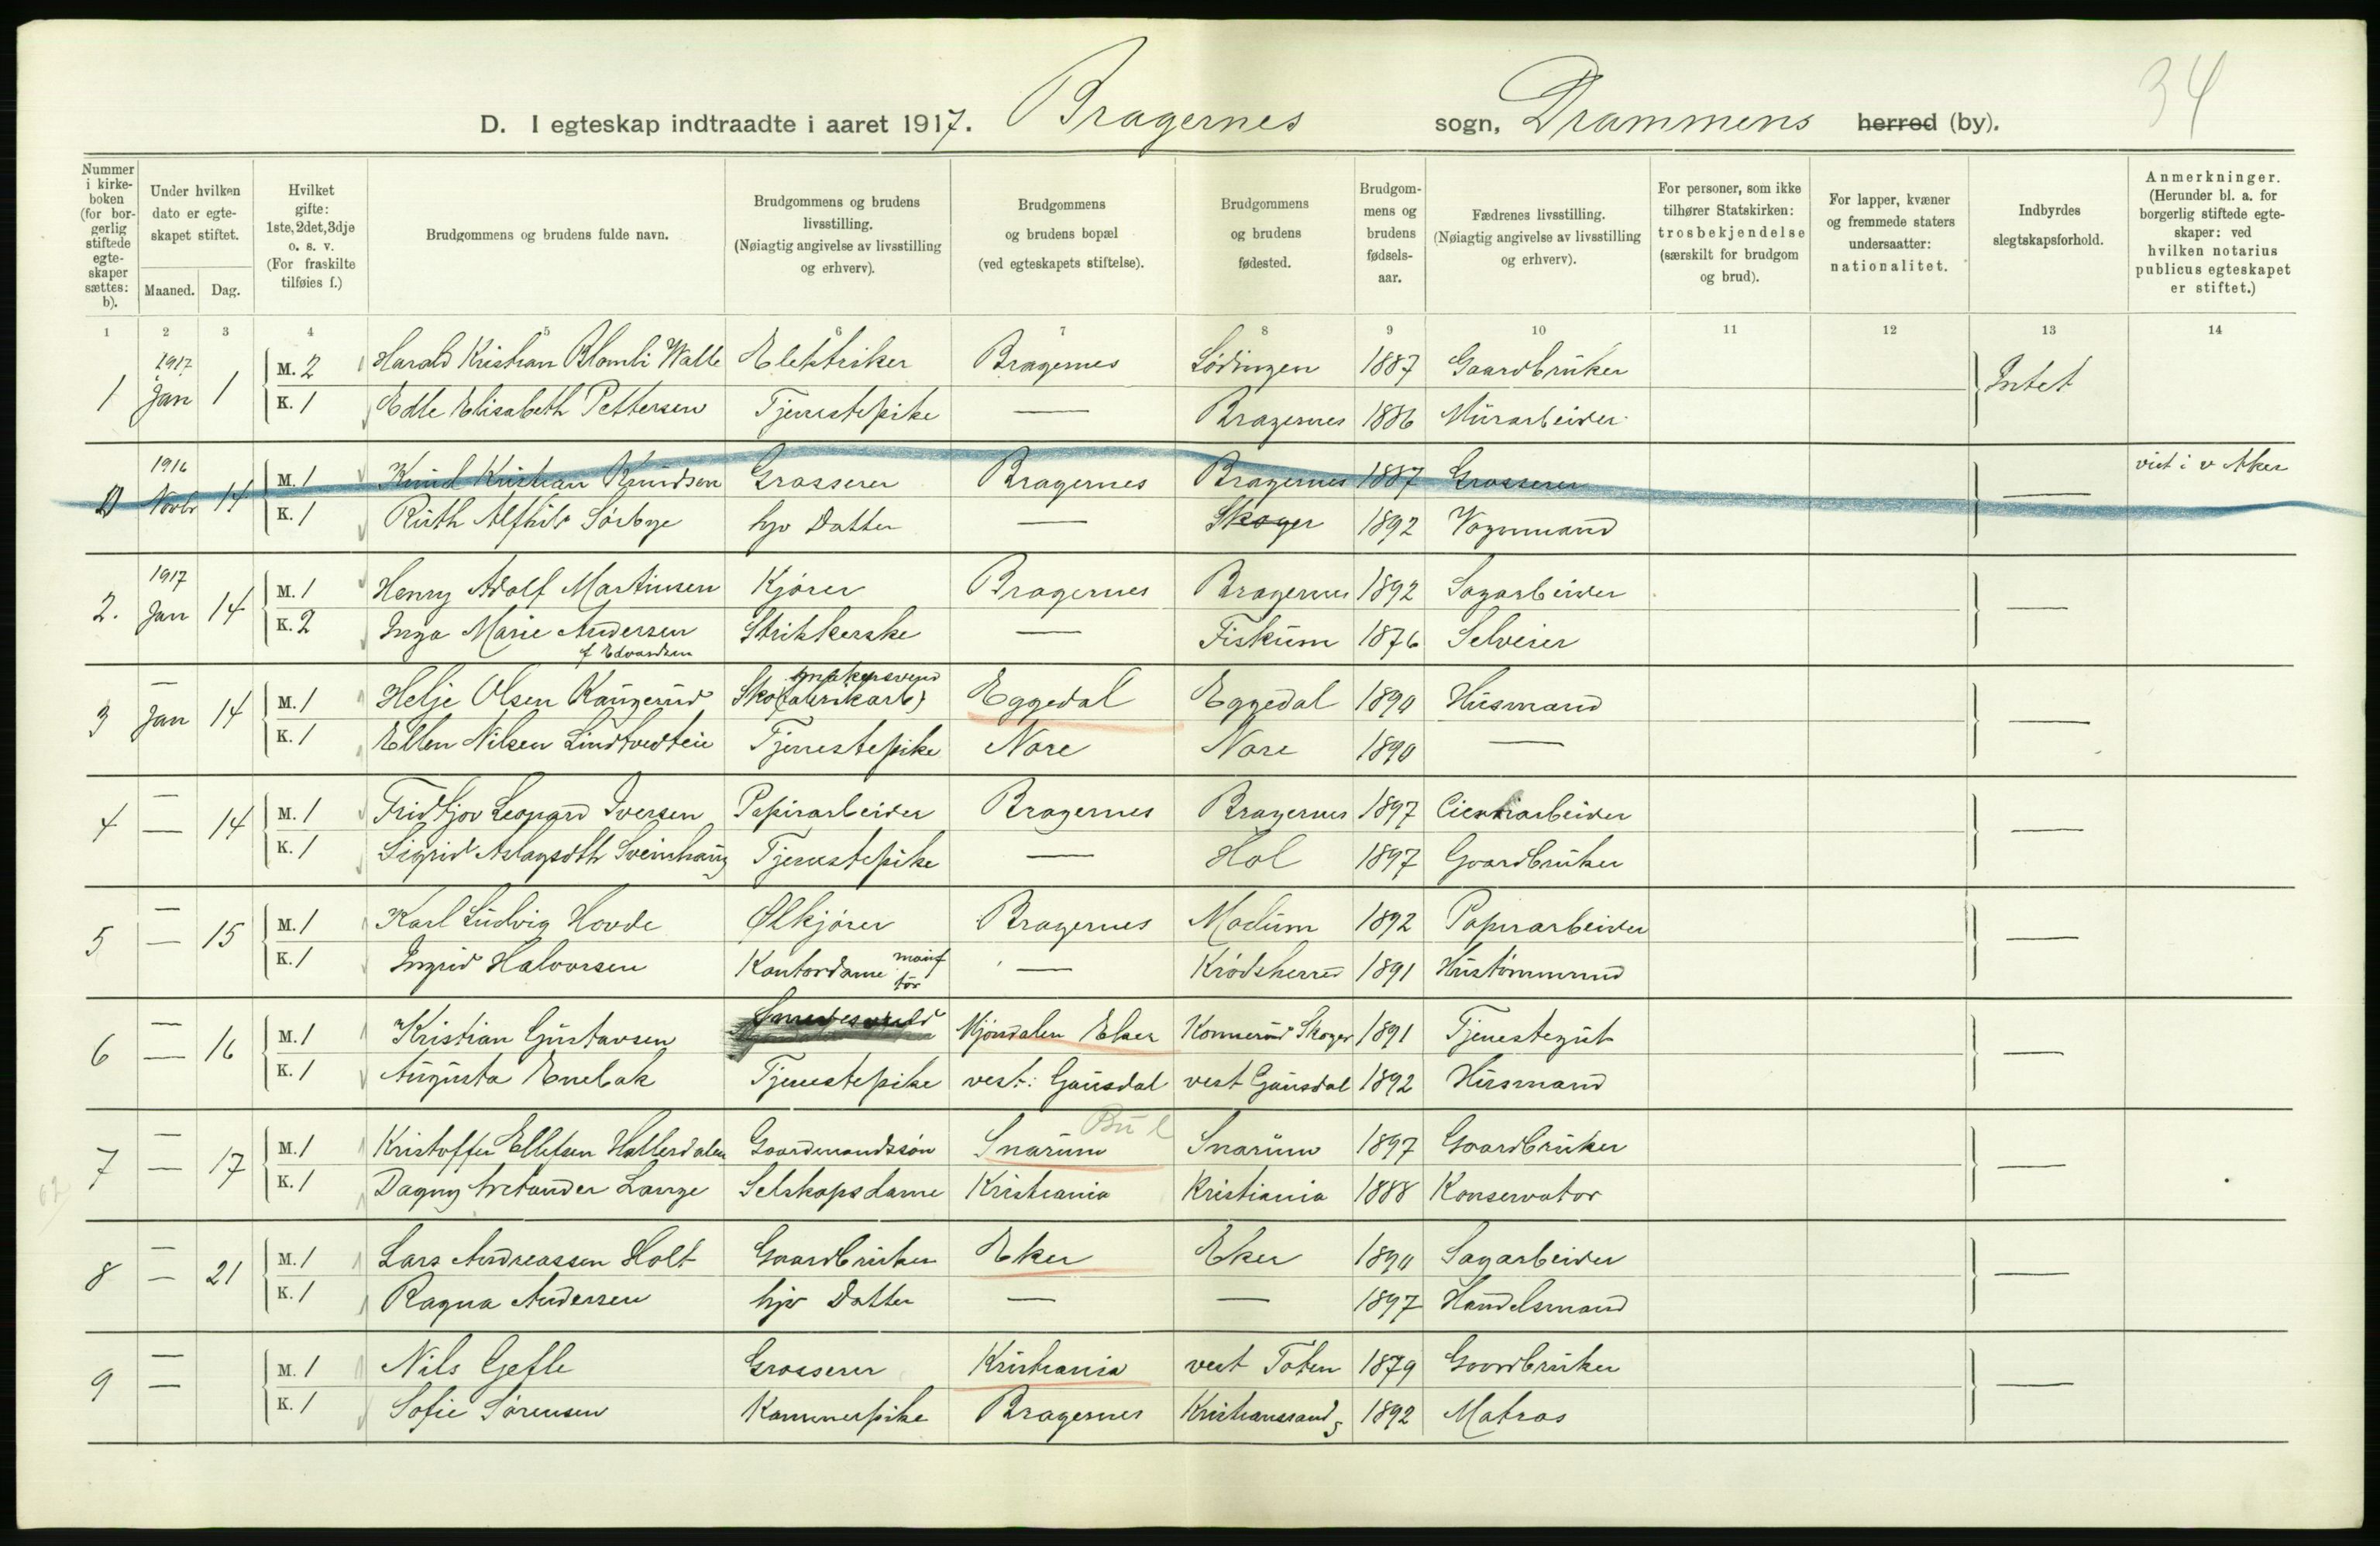 34
D. I egteskap indtraadte i aaret 1917. Bragernes sogn, Drammens herred (by).
Nummer i kirkeboken (for borgerlig stiftede egteskaper sættes: b).
Under hvilken dato er egteskapet stiftet.
Maaned. Dag.
Hvilket gifte: 1ste, 2det, 3dje o. s. v. (For fraskilte tilføies f.)
Brudgommens og brudens fulde navn.
Brudgommens og brudens livsstilling. (Nøiagtig angivelse av livsstilling og erhverv).
Brudgommens og brudens bopæl (ved egteskapets stiftelse).
Brudgommens og brudens fødested.
Brudgommens og brudens fødselsaar.
Fædrenes livsstilling. (Nøiagtig angivelse av livsstilling og erhverv).
For personer, som ikke tilhører Statskirken: trosbekjendelse (særskilt for brudgom og brud).
For lapper, kvæner og fremmede staters undersaatter: nationalitet.
Indbyrdes slegtskapsforhold.
Anmerkninger. (Herunder bl. a. for borgerlig stiftede egteskaper: ved hvilken notarius publicus egteskapet er stiftet.)
1 2 3 4 5 6 7 8 9 10 11 12 13 14
1 1917 Jan 1 M. 2 Harald Kristian Blomli Walle Elektriker Bragernes Lødingen 1887 Gaardbruker Intet
K. 1 Edle Elisabeth Pettersen Tjenestepike — Bragernes 1886 Murarbeider
1916 Novbr 14 M. 1 Knud Kristian Knudsen Grosserer Bragernes Bragernes 1887 Grosserer — viet i v Aker
K. 1 Ruth Alfhild Sørbye hjv Datter — Skoger 1892 Vognmand
2. 1917 Jan 14 M. 1 Henry Adolf Martinsen Kjører Bragernes Bragernes 1892 Sagarbeider —
K. 2 Inga Marie Andersen Strikkerske — Fiskum 1876 Selveier
f Edvardsen
3 — Jan 14 M. 1 Helje Olsen Kaugerud Sko(fabrikarb) makersvend Eggedal Eggedal 1890 Husmand —
K. 1 Ellen Nilsen Lindtvedteie Tjenestepike Nore Nore 1890 —
4 — — 14 M. 1 Fridtjov Leopard Iversen Papirarbeider Bragernes Bragernes 1897 arbeider —
K. 1 Sigrid Aslagsdth Sveinhaug Tjenestepike — Hol 1897 Gaardbruker
5 — — 15 M. 1 Karl Ludvig Hovde Ølkjører Bragernes Modum 1892 Papirarbeider —
K. 1 Ingrid Halvorsen Kontordame — Krødsherred 1891 Hustømmermd
6 — — 16 M. 1 Kristian Gustavsen Smedesvend Mjøndalen Eker Konnerud Skoger 1891 Tjenestegut —
K. 1 Augusta Enebak Tjenestepike vest: Gausdal vest Gausdal 1892 Husmand
7 — — 17 M. 1 Kristoffer Ellefsen Hallersdalen Gaardmandssøn Snarum Snarum 1897 Gaardbruker —
K. 1 Dagny Aretander Lange Selskapsdame Kristiania Kristiania 1888 Konservator
8 — — 21 M. 1 Lars Andreassen Holt Gaardbruker Eker Eker 1890 Sagarbeider —
K. 1 Ragna Andersen hjv Datter — — 1897 Handelsmand
9 — — M. 1 Nils Gjefle Grosserer Kristiania vest Toten 1879 Gaardbruker —
K. 1 Sofie Sørensen Kammerpike Bragernes Kristianssand S 1892 Matros